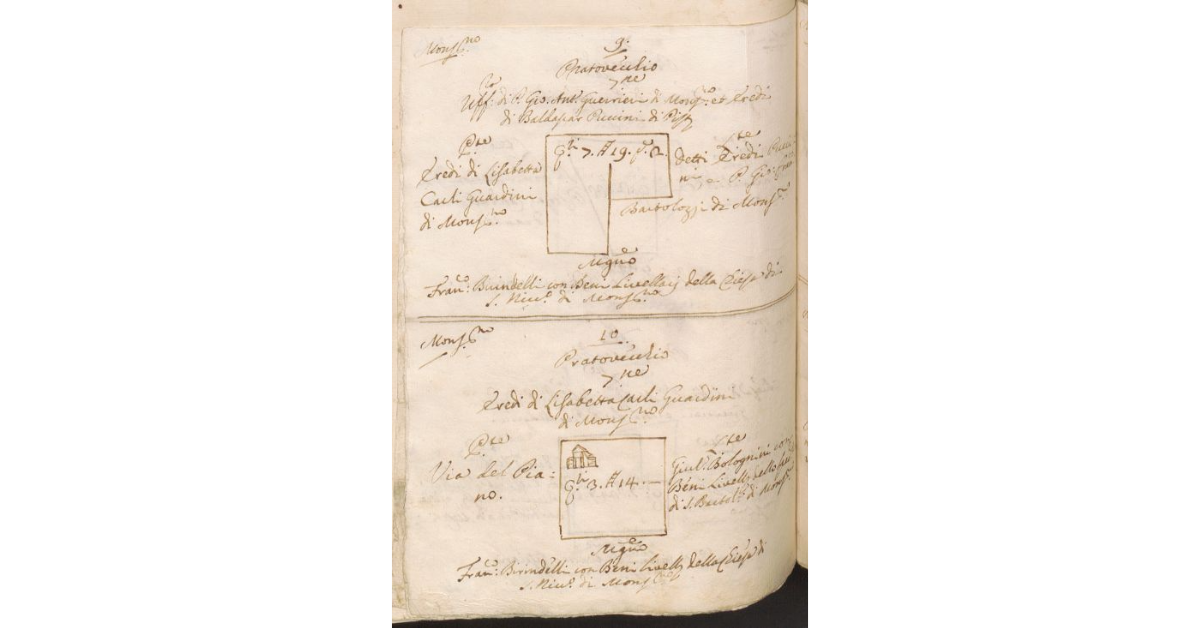 Mons:no
9.
Pratovecchio
ne
Uff: di P. Gio: Ant: Guerrieri di Mons:no et Eredi
di Baldassar Puccini di
P:te
Eredi di Lisabetta
Carli Guardini
di Mons:no
Q:ti 7. A 19. P. 2.
L:te
detti Eredi Pucci
ni e P. Gio:
Bartolozzi di Mons:no
M:giorno
Fran:co Birindelli con Beni Livellarj della Chiesa di
S. Nicc:o di Mons:no
Mons:no
10
Pratovecchio
ne
Eredi di Lisabetta Carli Guardini
di Mons:no
P:te
Via del Pia=
no.
Q:ti 3. A 14. —
L:te
Giul: Bolognini con
Beni Livell: della
di S. Bartol: di Mons:no
M:giorno
Fran:co Birindelli con Beni Livell: della Chiesa di
S. Nicc:o di Mons:no